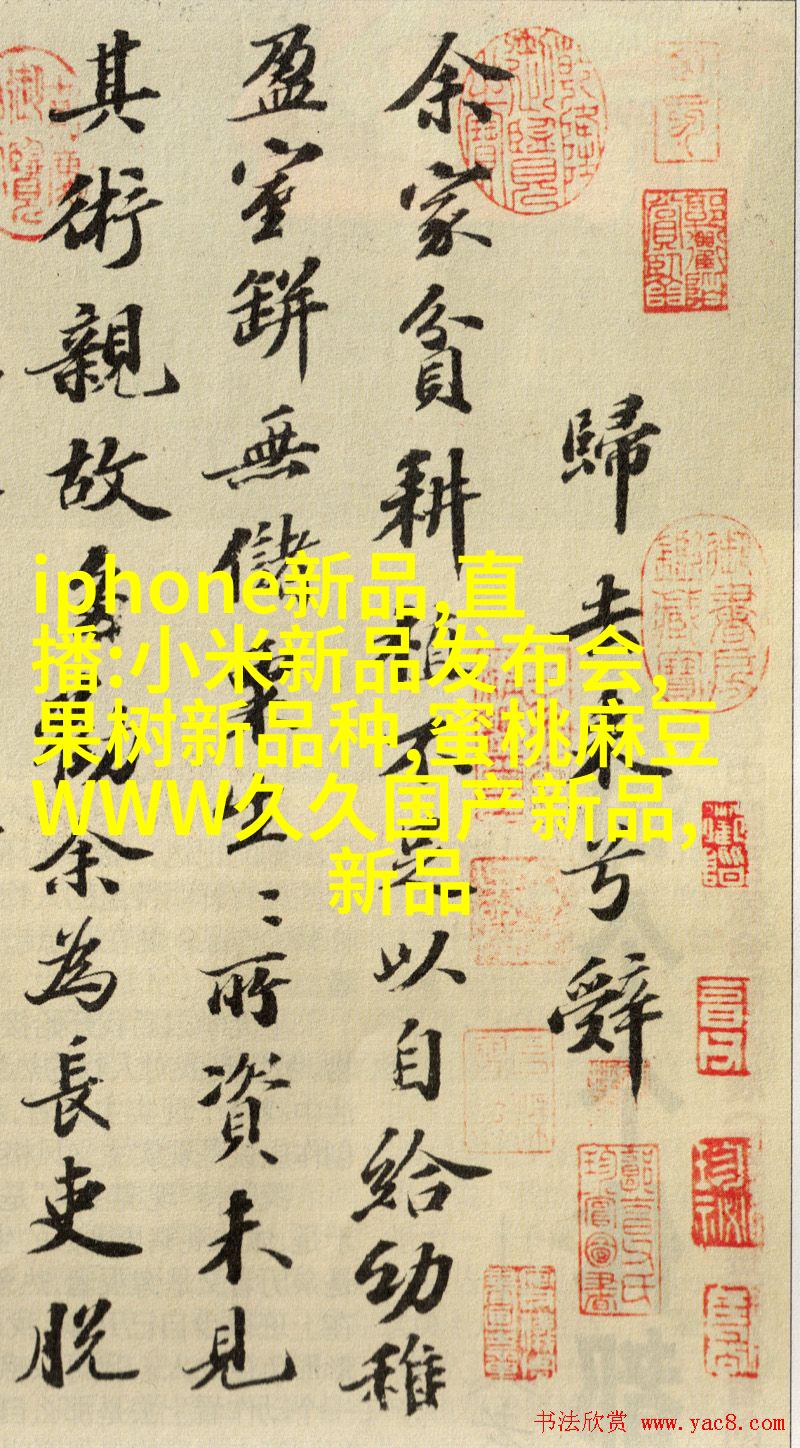 歸去來兮辭
余家貧耕植不足以自給幼稚
盈室缾無儲粟生〻所資未見
其術親故多勸余為長吏脫
iphone新品,直
播:小米新品发布会,
果树新品种,蜜桃麻豆
WWW久久国产新品,
新品
书法欣赏 www.yac8.com